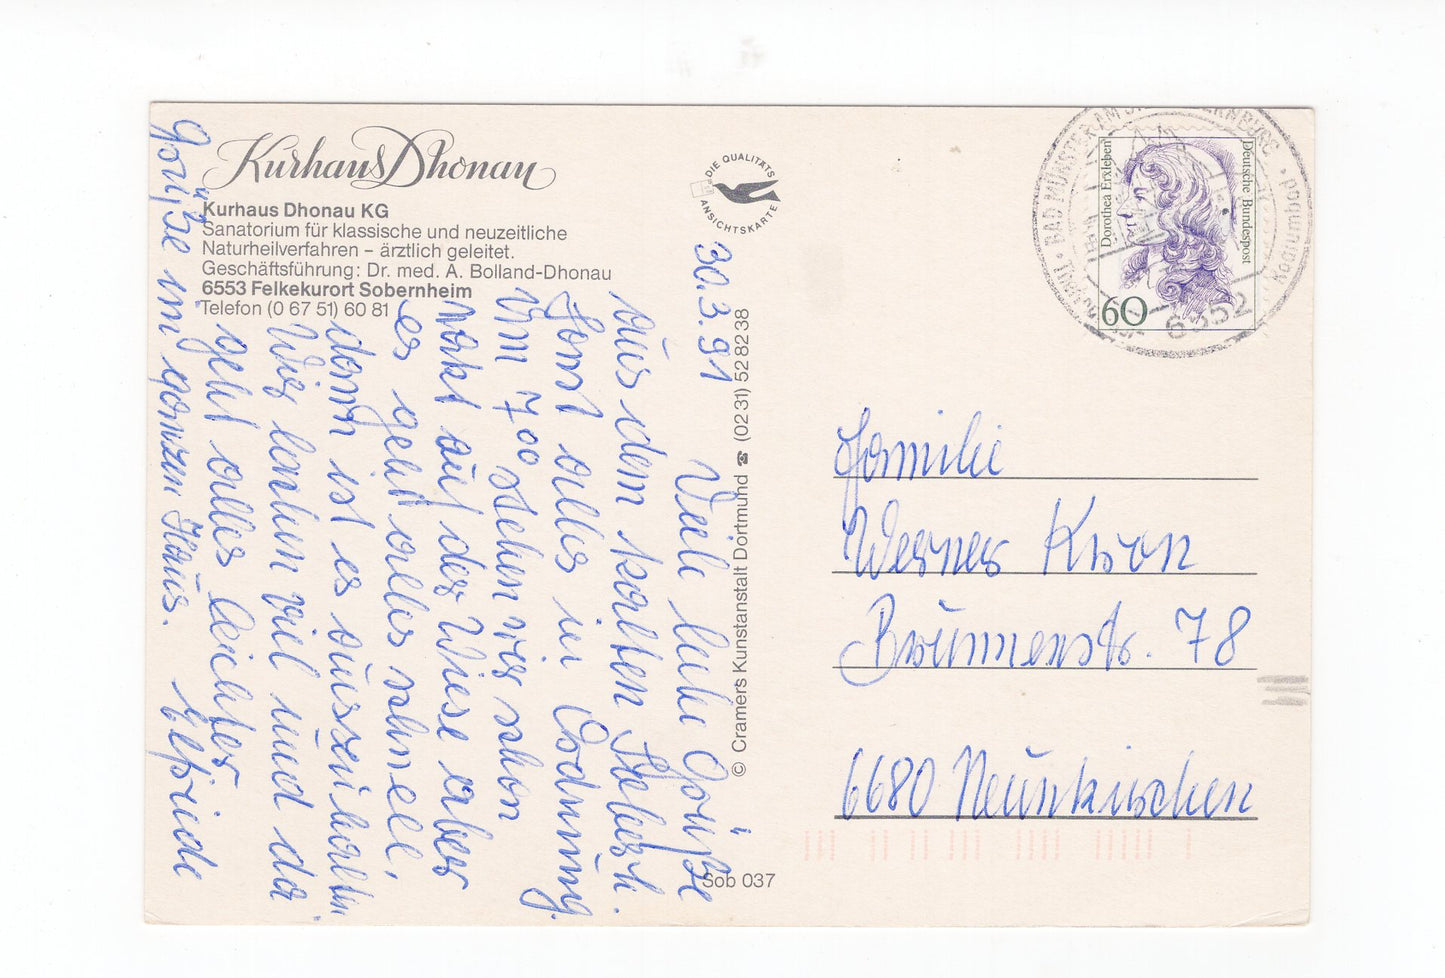 Kurhaus Dhonau
Kurhaus Dhonau KG
Sanatorium für klassische und neuzeitliche
Naturheilverfahren – ärztlich geleitet.
Geschäftsführung: Dr. med. A. Bolland-Dhonau
6553 Felkekurort Sobernheim
Telefon (0 67 51) 60 81
DIE QUALITÄTS
ANSICHTSKARTE
30.3.91
Viele liebe Grüße
aus dem kalten
Sonst alles in Ordnung.
Um 7⁰⁰ stehen wir schon
nakt auf der Wiese aber
es geht alles schnell,
dann ist es auszuhalten
Wir lachen viel und da
geht alles leichter
Grüße im ganzen Haus. Elfriede
© Cramers Kunstanstalt Dortmund ☎ (02 31) 52 82 38
Sob 037
Dorothea Erxleben
Deutsche Bundespost
60
BAD MÜNSTER AM
6552
Familie
Werner Kron
Brunnenstr. 78
6680 Neunkirchen